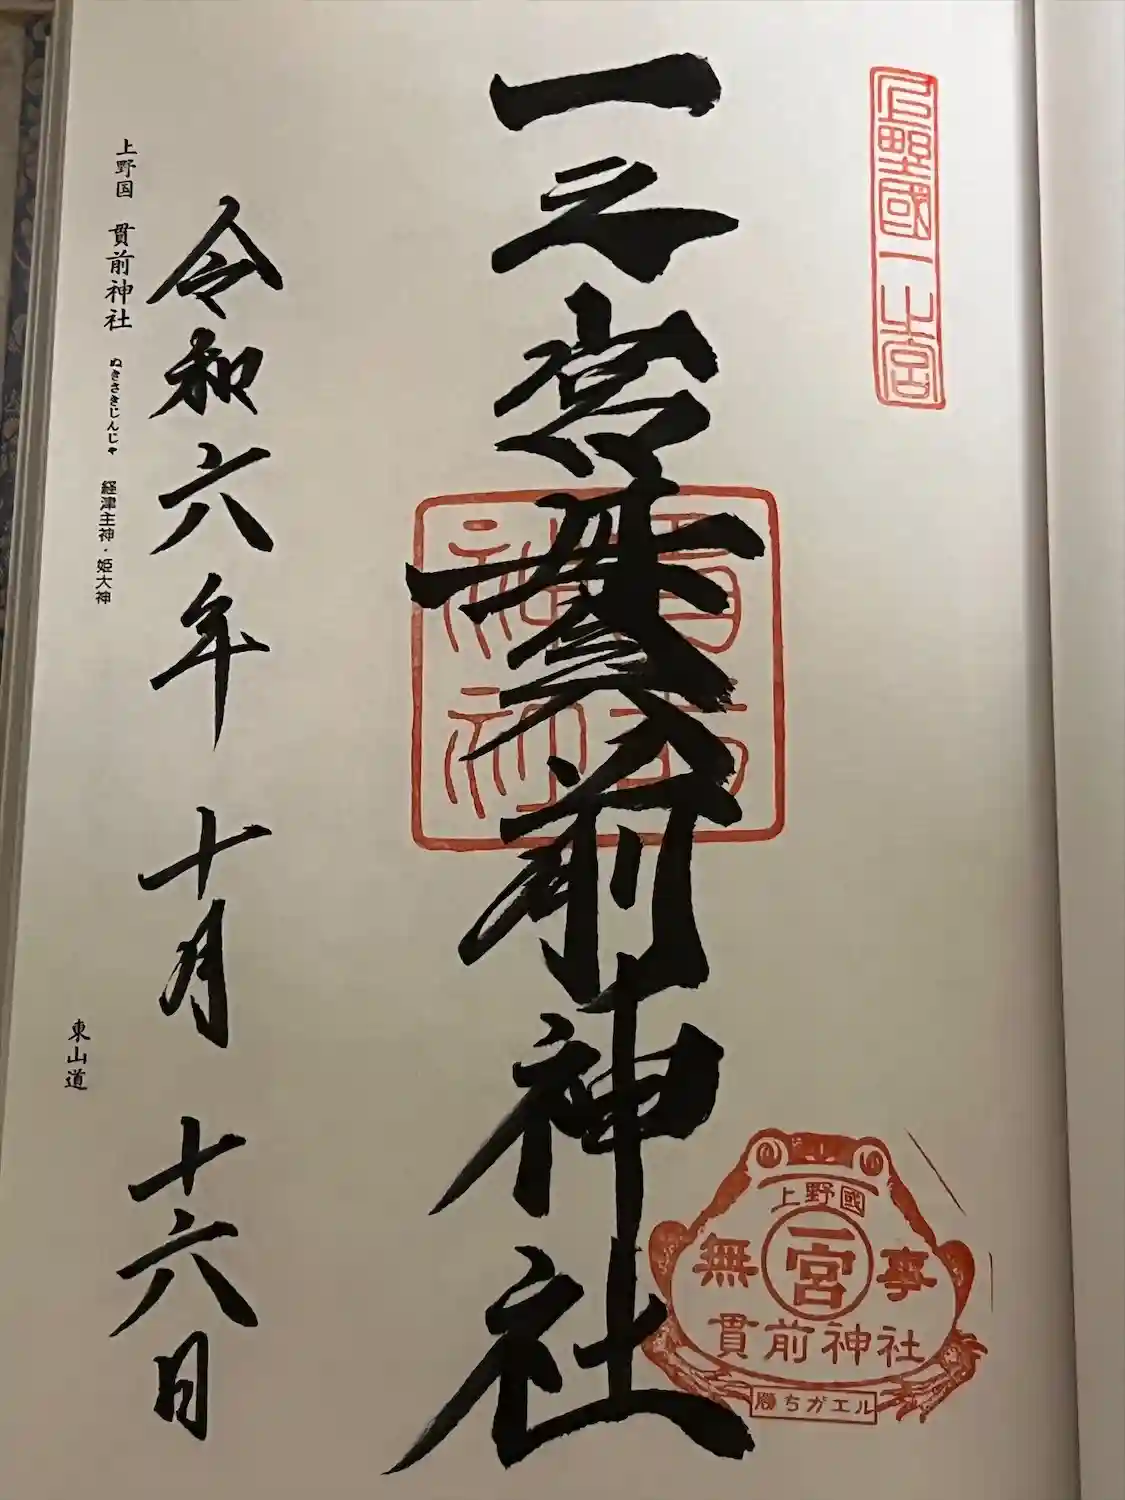 上野國一之宮
一之宮貫前神社
貫前神社
上野國
一宮
無事
貫前神社
勝ちガエル
令和六年十月十六日
上野国 貫前神社 ぬきさきじんじゃ 経津主神・姫大神
東山道